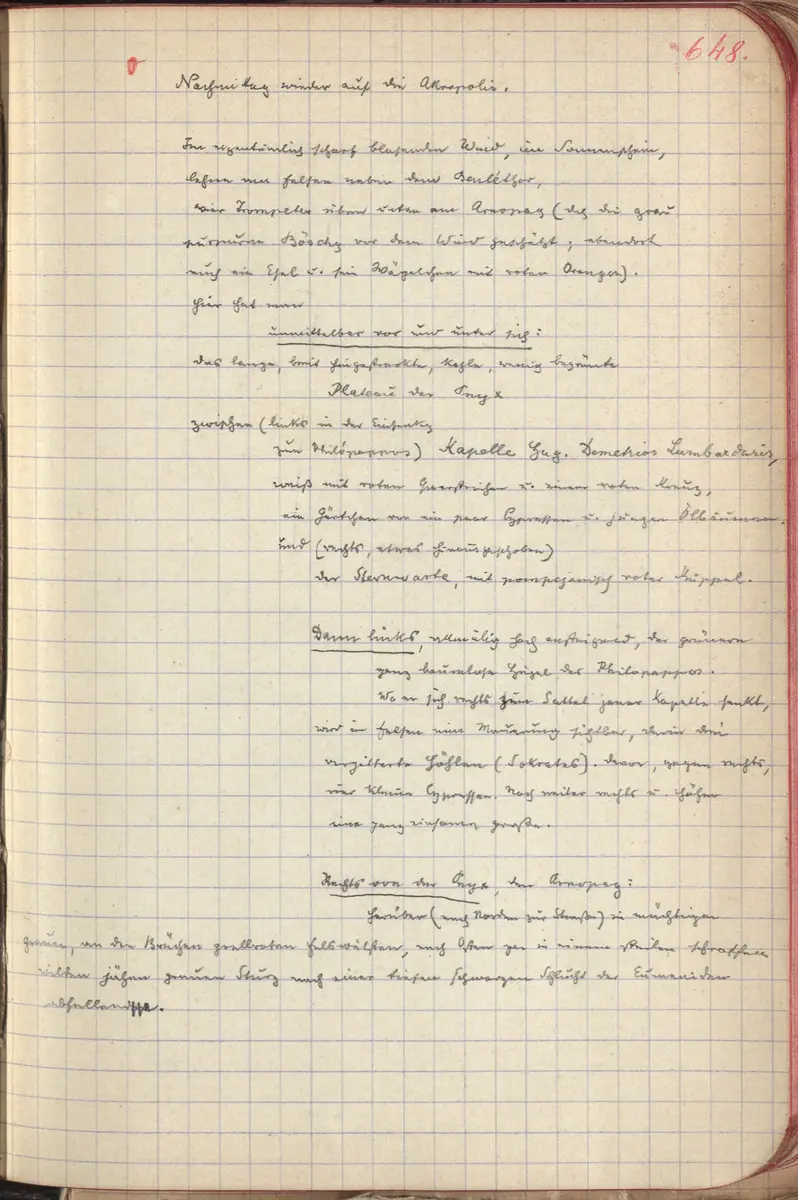 648.
Nachmittag wieder auf die Akropolis.
Im eigentümlich scharf blasenden Wind, im Sonnenschein,
lehne am Felsen neben dem Beuléthor,
vier Trompeter üben unten am Areopag (daß die grau
purpurne Böschg vor dem Wind geschützt; ebendort
auch ein Esel u. sein Wägelchen mit roten Orangen).
Hier hat man
unmittelbar vor und unter sich:
das lange, breit hingestreckte, kahle, wenig begrünte
Plateau der Pnyx
zwischen (links in der Einsenkg
zum Philópappos) Kapelle Hag. Demetrios Lumbardaris,
weiß mit roten Querstreifen u. einem roten Kreuz,
ein Gärtchen von ein paar Cypressen u. jungen Ölbäumen,
und (rechts, etwas hinausgeschoben)
der Sternwarte, mit pompejanisch roter Kuppel.
Dann links, allmälig hoch ansteigend, der grünere
ganz baumlose Hügel des Philopappos.
Wo er sich rechts zum Sattel jener Kapelle senkt,
wird im Felsen eine Mauerung sichtbar, darin drei
vergitterte Höhlen (Sokrates). Davor, gegen rechts,
vier kleine Cypressen. Noch weiter rechts u. höher
eine ganz einsame große.
Rechts von der Pnyx, den Areopag:
herüber (nach Norden zur Straße) in mächtigen
grauen, an den Brüchen grellroten Felswülsten, nach Osten gar in einem steilen schroffen
wilden jähen grauen Sturz nach einer tiefen schwarzen Schlucht der Eumeniden